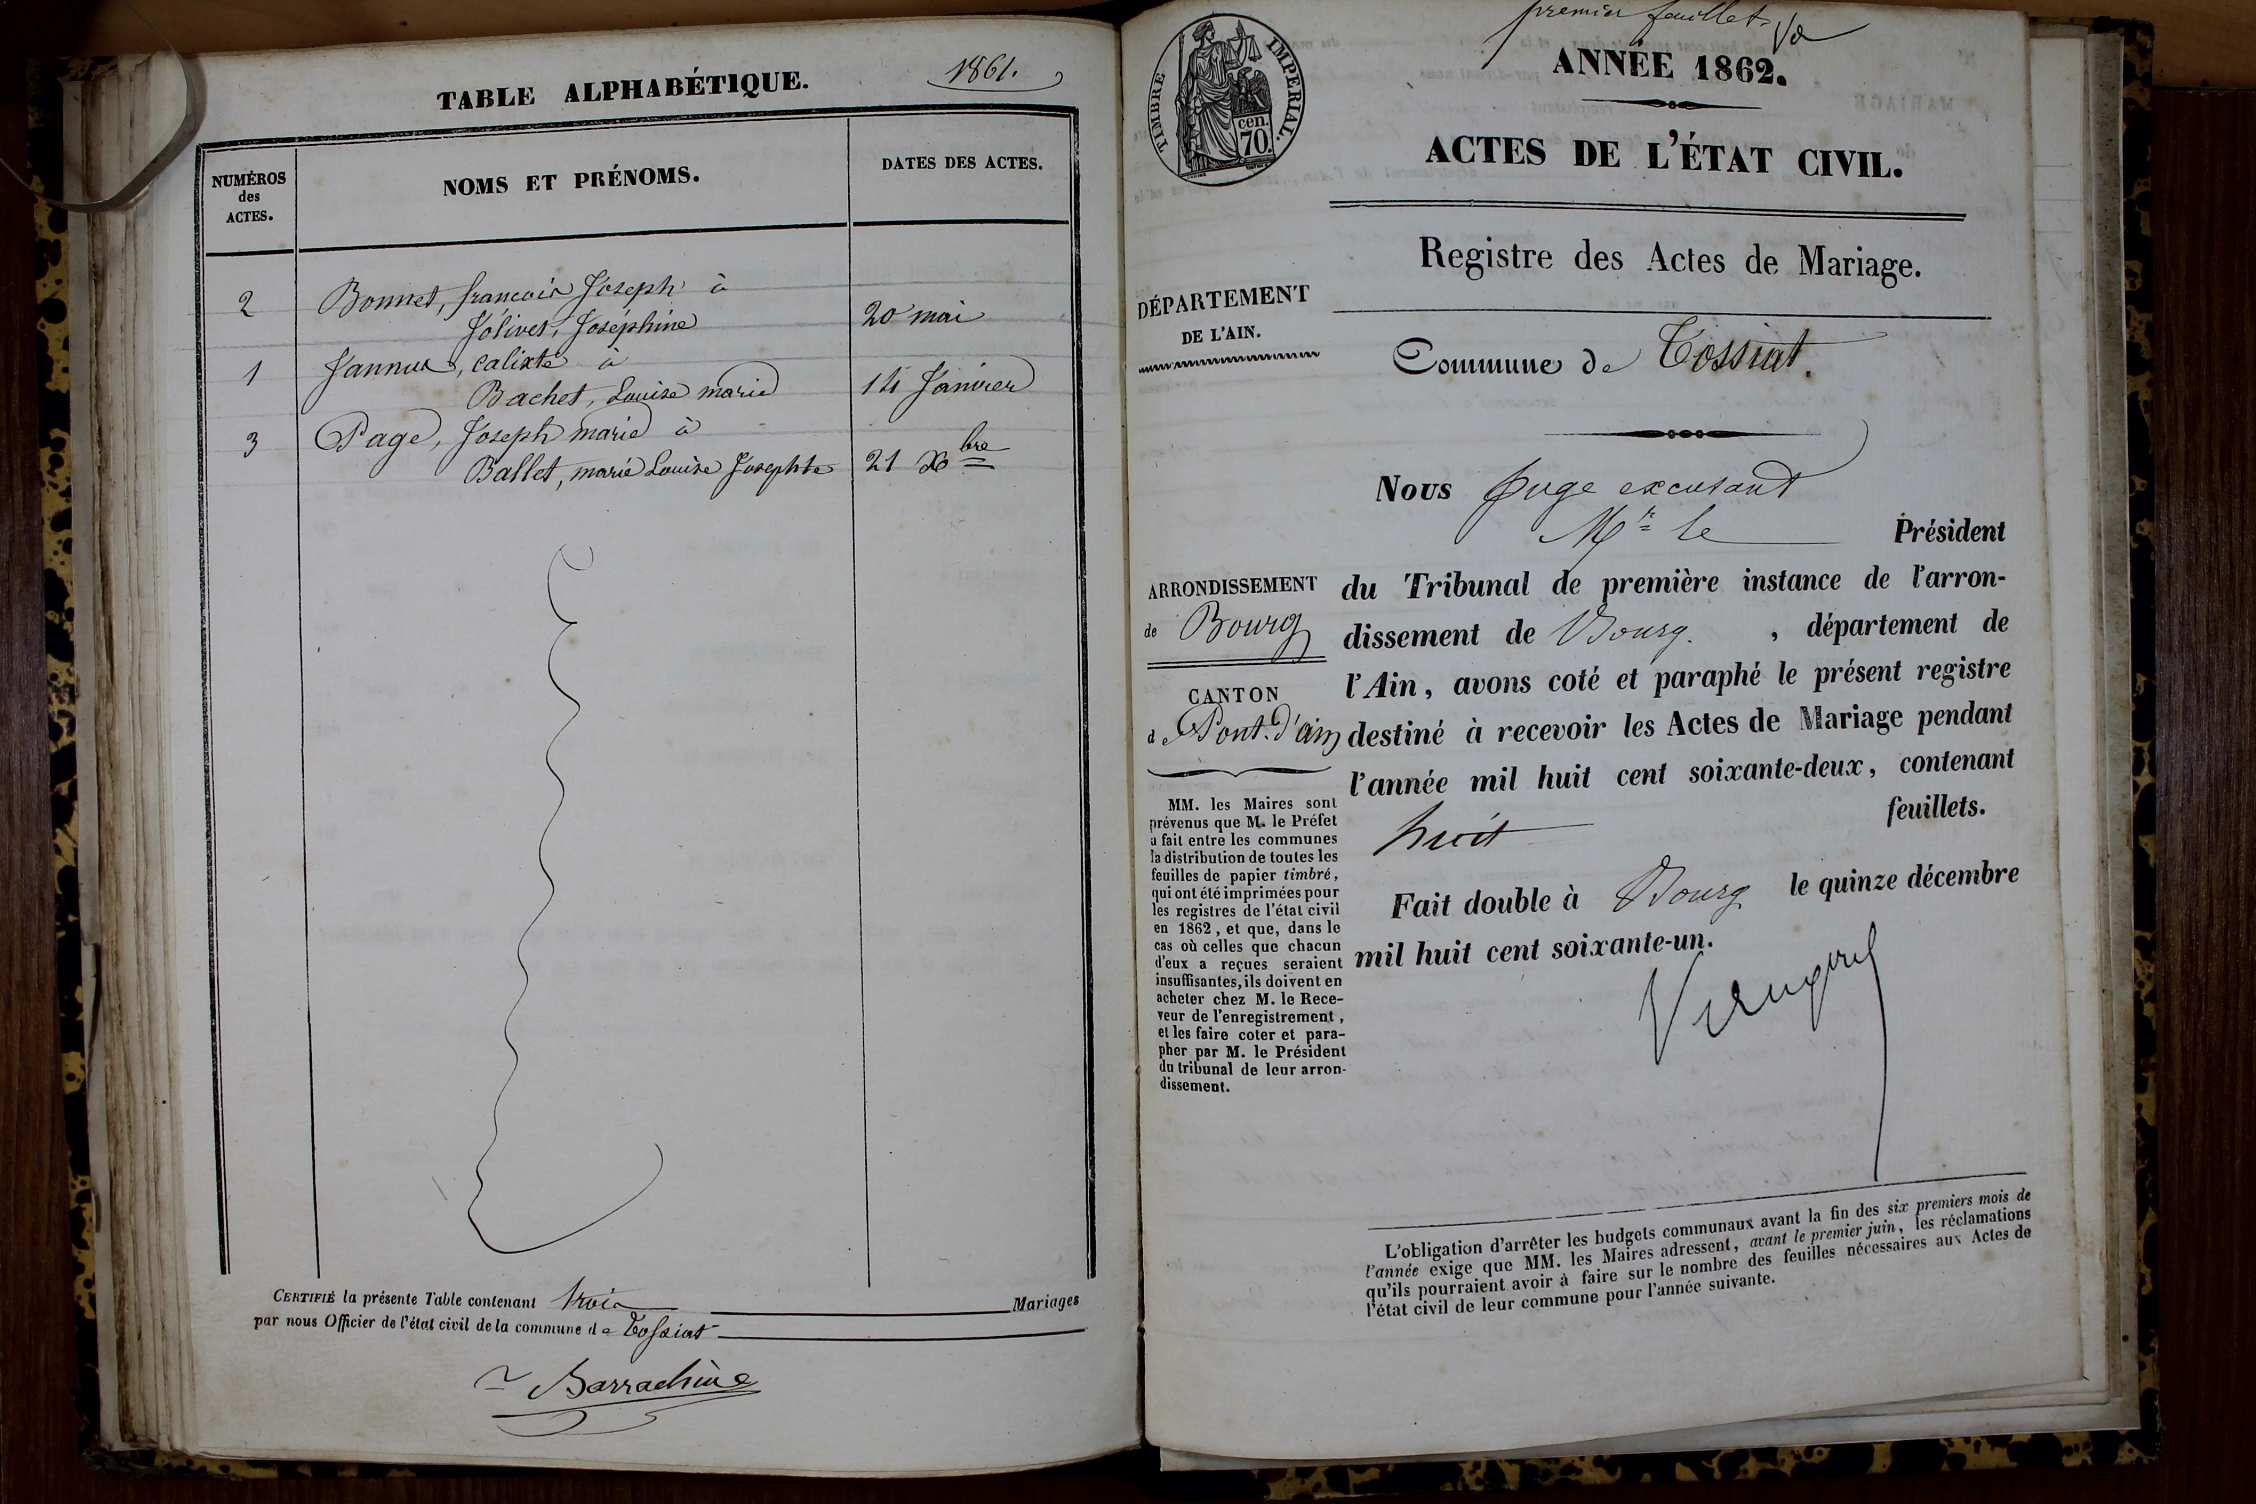 TABLE ALPHABÉTIQUE.
1861.
NUMÉROS
des
ACTES.
NOMS ET PRÉNOMS.
DATES DES ACTES.
2 Bonnet, françois Joseph à
Jolivet, Joséphine 20 mai
1 Jannux, calixte à
Bachet, Louise marie 14 Janvier
3 Page, Joseph marie à
Ballet, marie Louise Josephte 21 Xbre
CERTIFIÉ la présente Table contenant trois Mariages
par nous Officier de l'état civil de la commune de Tossiat
Barrachine
premier feuillet
TIMBRE IMPERIAL.
70.
cen.
ANNÉE 1862.
ACTES DE L'ÉTAT CIVIL.
Registre des Actes de Mariage.
DÉPARTEMENT
DE L'AIN.
Commune de Tossiat.
Nous Juge excusant
Mr le Président
du Tribunal de première instance de l'arron-
dissement de Bourg. , département de
l'Ain, avons coté et paraphé le présent registre
destiné à recevoir les Actes de Mariage pendant
l'année mil huit cent soixante-deux, contenant
huit feuillets.
Fait double à Bourg le quinze décembre
mil huit cent soixante-un.
ARRONDISSEMENT
de Bourg
CANTON
de Pont-d'ain
MM. les Maires sont
prévenus que M. le Préfet
a fait entre les communes
la distribution de toutes les
feuilles de papier timbré,
qui ont été imprimées pour
les registres de l'état civil
en 1862, et que, dans le
cas où celles que chacun
d'eux a reçues seraient
insuffisantes, ils doivent en
acheter chez M. le Rece-
veur de l'enregistrement,
et les faire coter et para-
pher par M. le Président
du tribunal de leur arron-
dissement.
L'obligation d'arrêter les budgets communaux avant la fin des six premiers mois de
l'année exige que MM. les Maires adressent, avant le premier juin, les réclamations
qu'ils pourraient avoir à faire sur le nombre des feuilles nécessaires aux Actes de
l'état civil de leur commune pour l'année suivante.